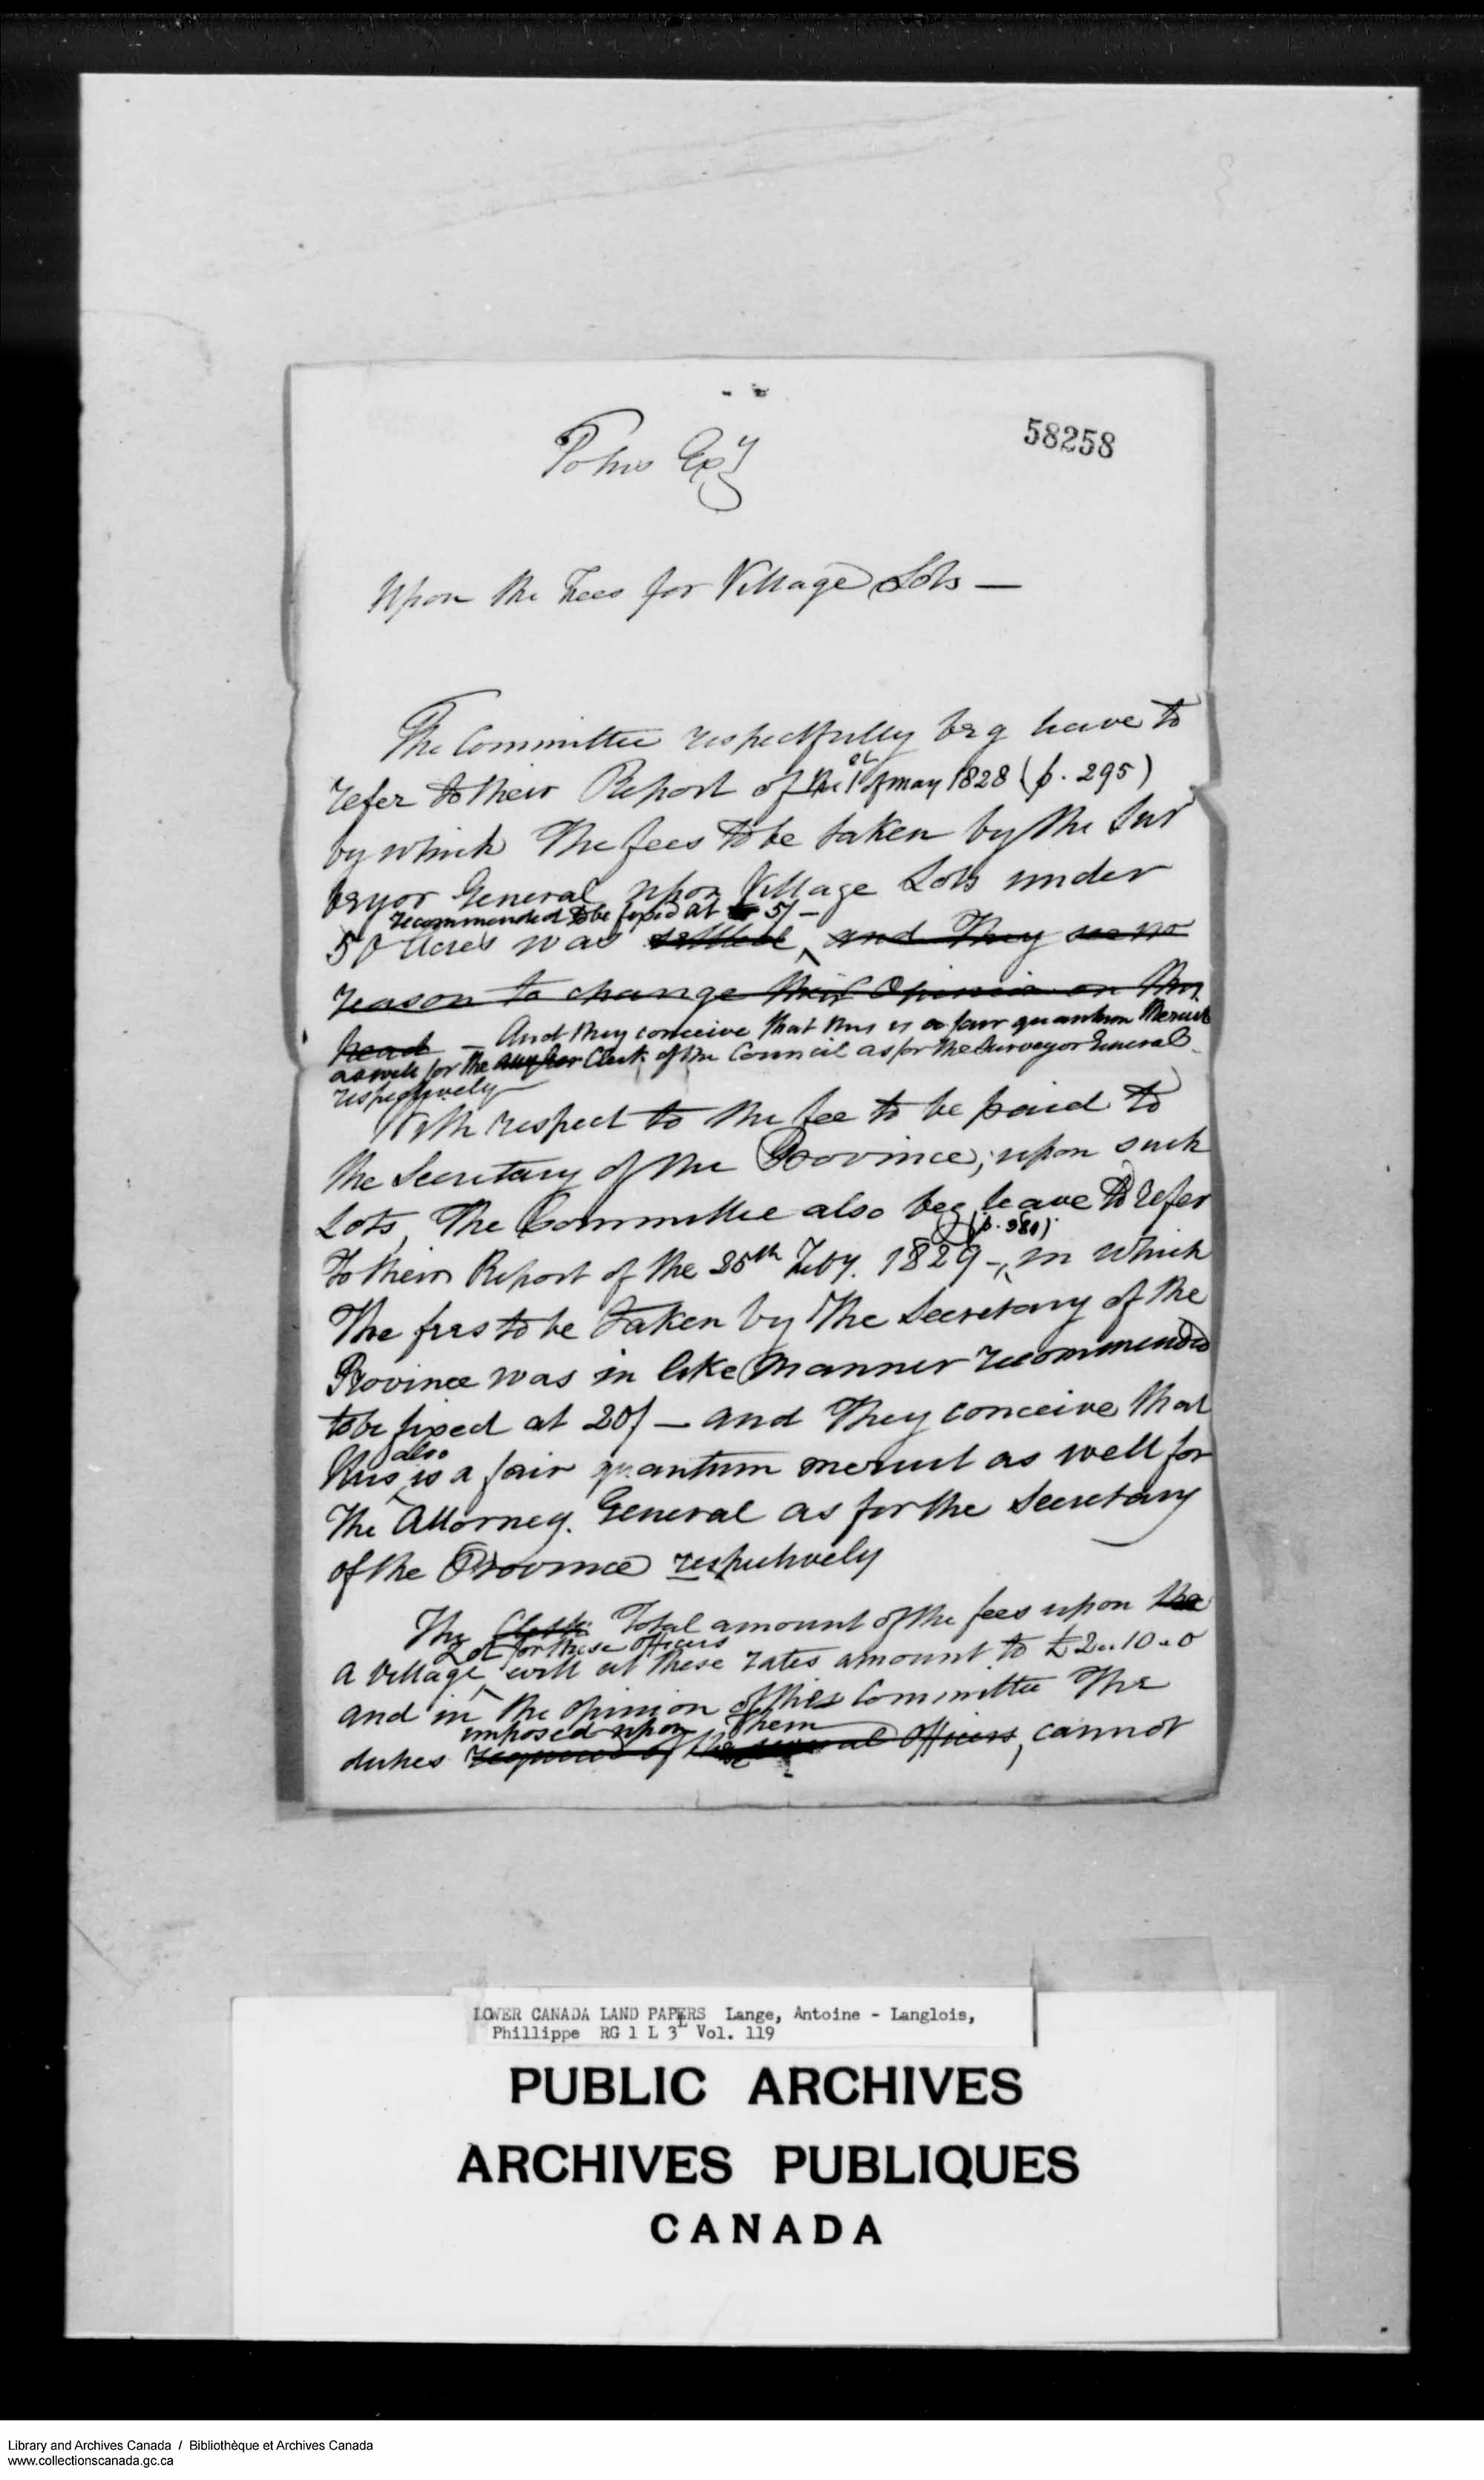 58258
To his Exy
Upon the Fees for Village Lots —
The Committee respectfully beg leave to
refer to their Report of the 1st of may 1828 (p. 295)
by which The fees to be taken by the Sur
veyor General upon Village Lots under
recommended to be fixed at 5/ —
50 Acres was settled, and They see no
reason to change their Opinion on this
head — And they conceive that this is a fair quantum Meruit
as well for the Clerk of the Council as for the Surveyor General
respectively
With respect to the fee to be paid to
the Secretary of the Province, upon such
Lots, The Committee also beg leave to refer
(p. 381)
to their Report of the 25th Feby. 1829 — in which
The fees to be taken by The Secretary of the
Province was in like Manner recommended
to be fixed at 20/ — and They conceive that
also
this is a fair quantum meruit as well for
The Attorney General as for the Secretary
of the Province respectively
The Clerk Total amount of the fees upon the
Lot for these officers
a Village will at these rates amount to £2..10.0
and in the opinion of this Committee The
imposed upon Them
duties required of the several officers, cannot
LOWER CANADA LAND PAPERS Lange, Antoine - Langlois,
Phillippe RG 1 L 3L Vol. 119
PUBLIC ARCHIVES
ARCHIVES PUBLIQUES
CANADA
Library and Archives Canada / Bibliothèque et Archives Canada
www.collectionscanada.gc.ca